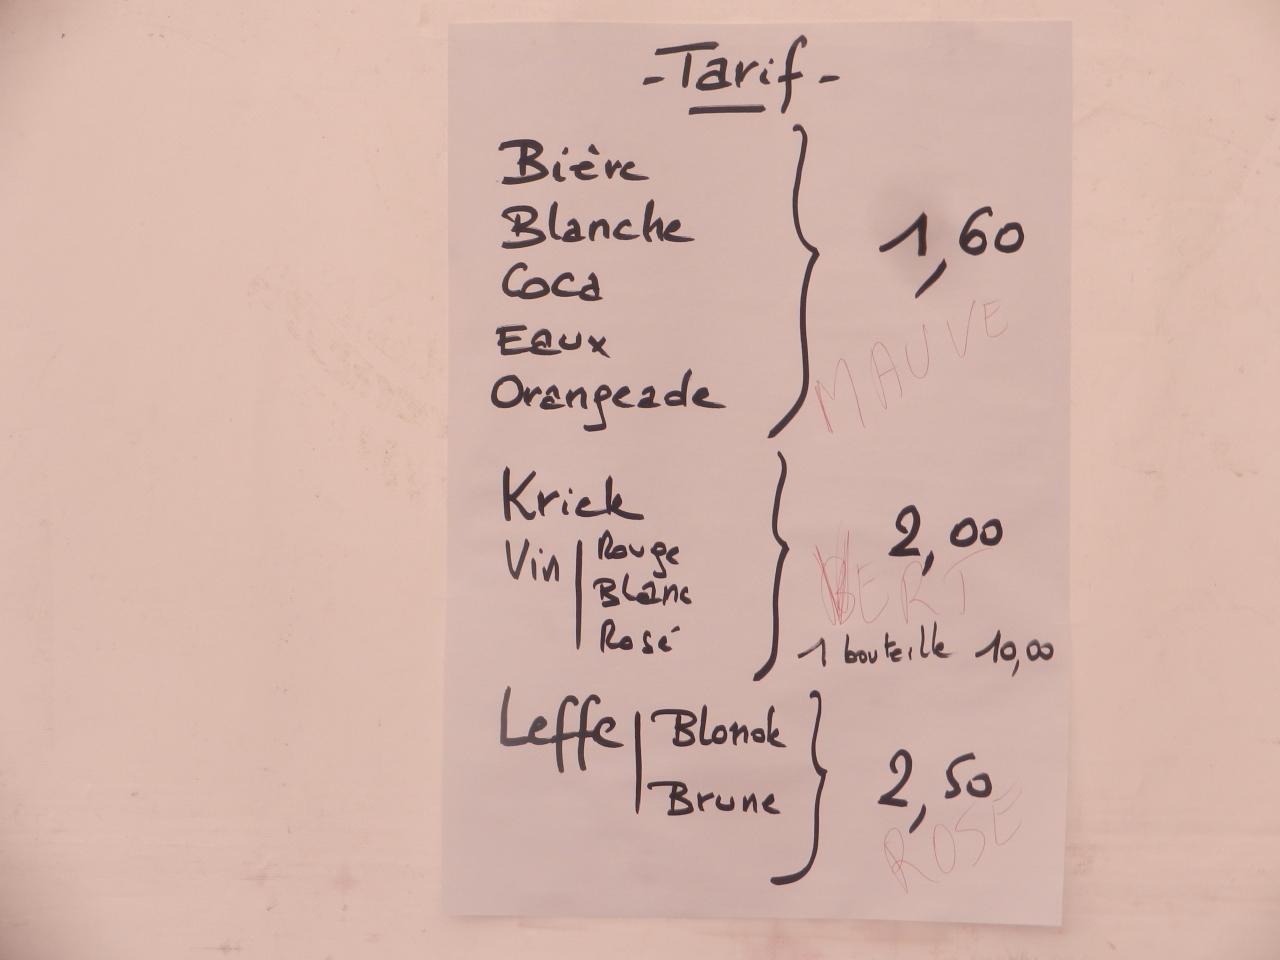 - Tarif -
Bière
Blanche
Coca
Eaux
Orangeade
1,60
MAUVE
Kriek
Vin
Rouge
Blanc
Rosé
2,00
VERT
1 bouteille 10,00
Leffe
Blonde
Brune
2,50
ROSE